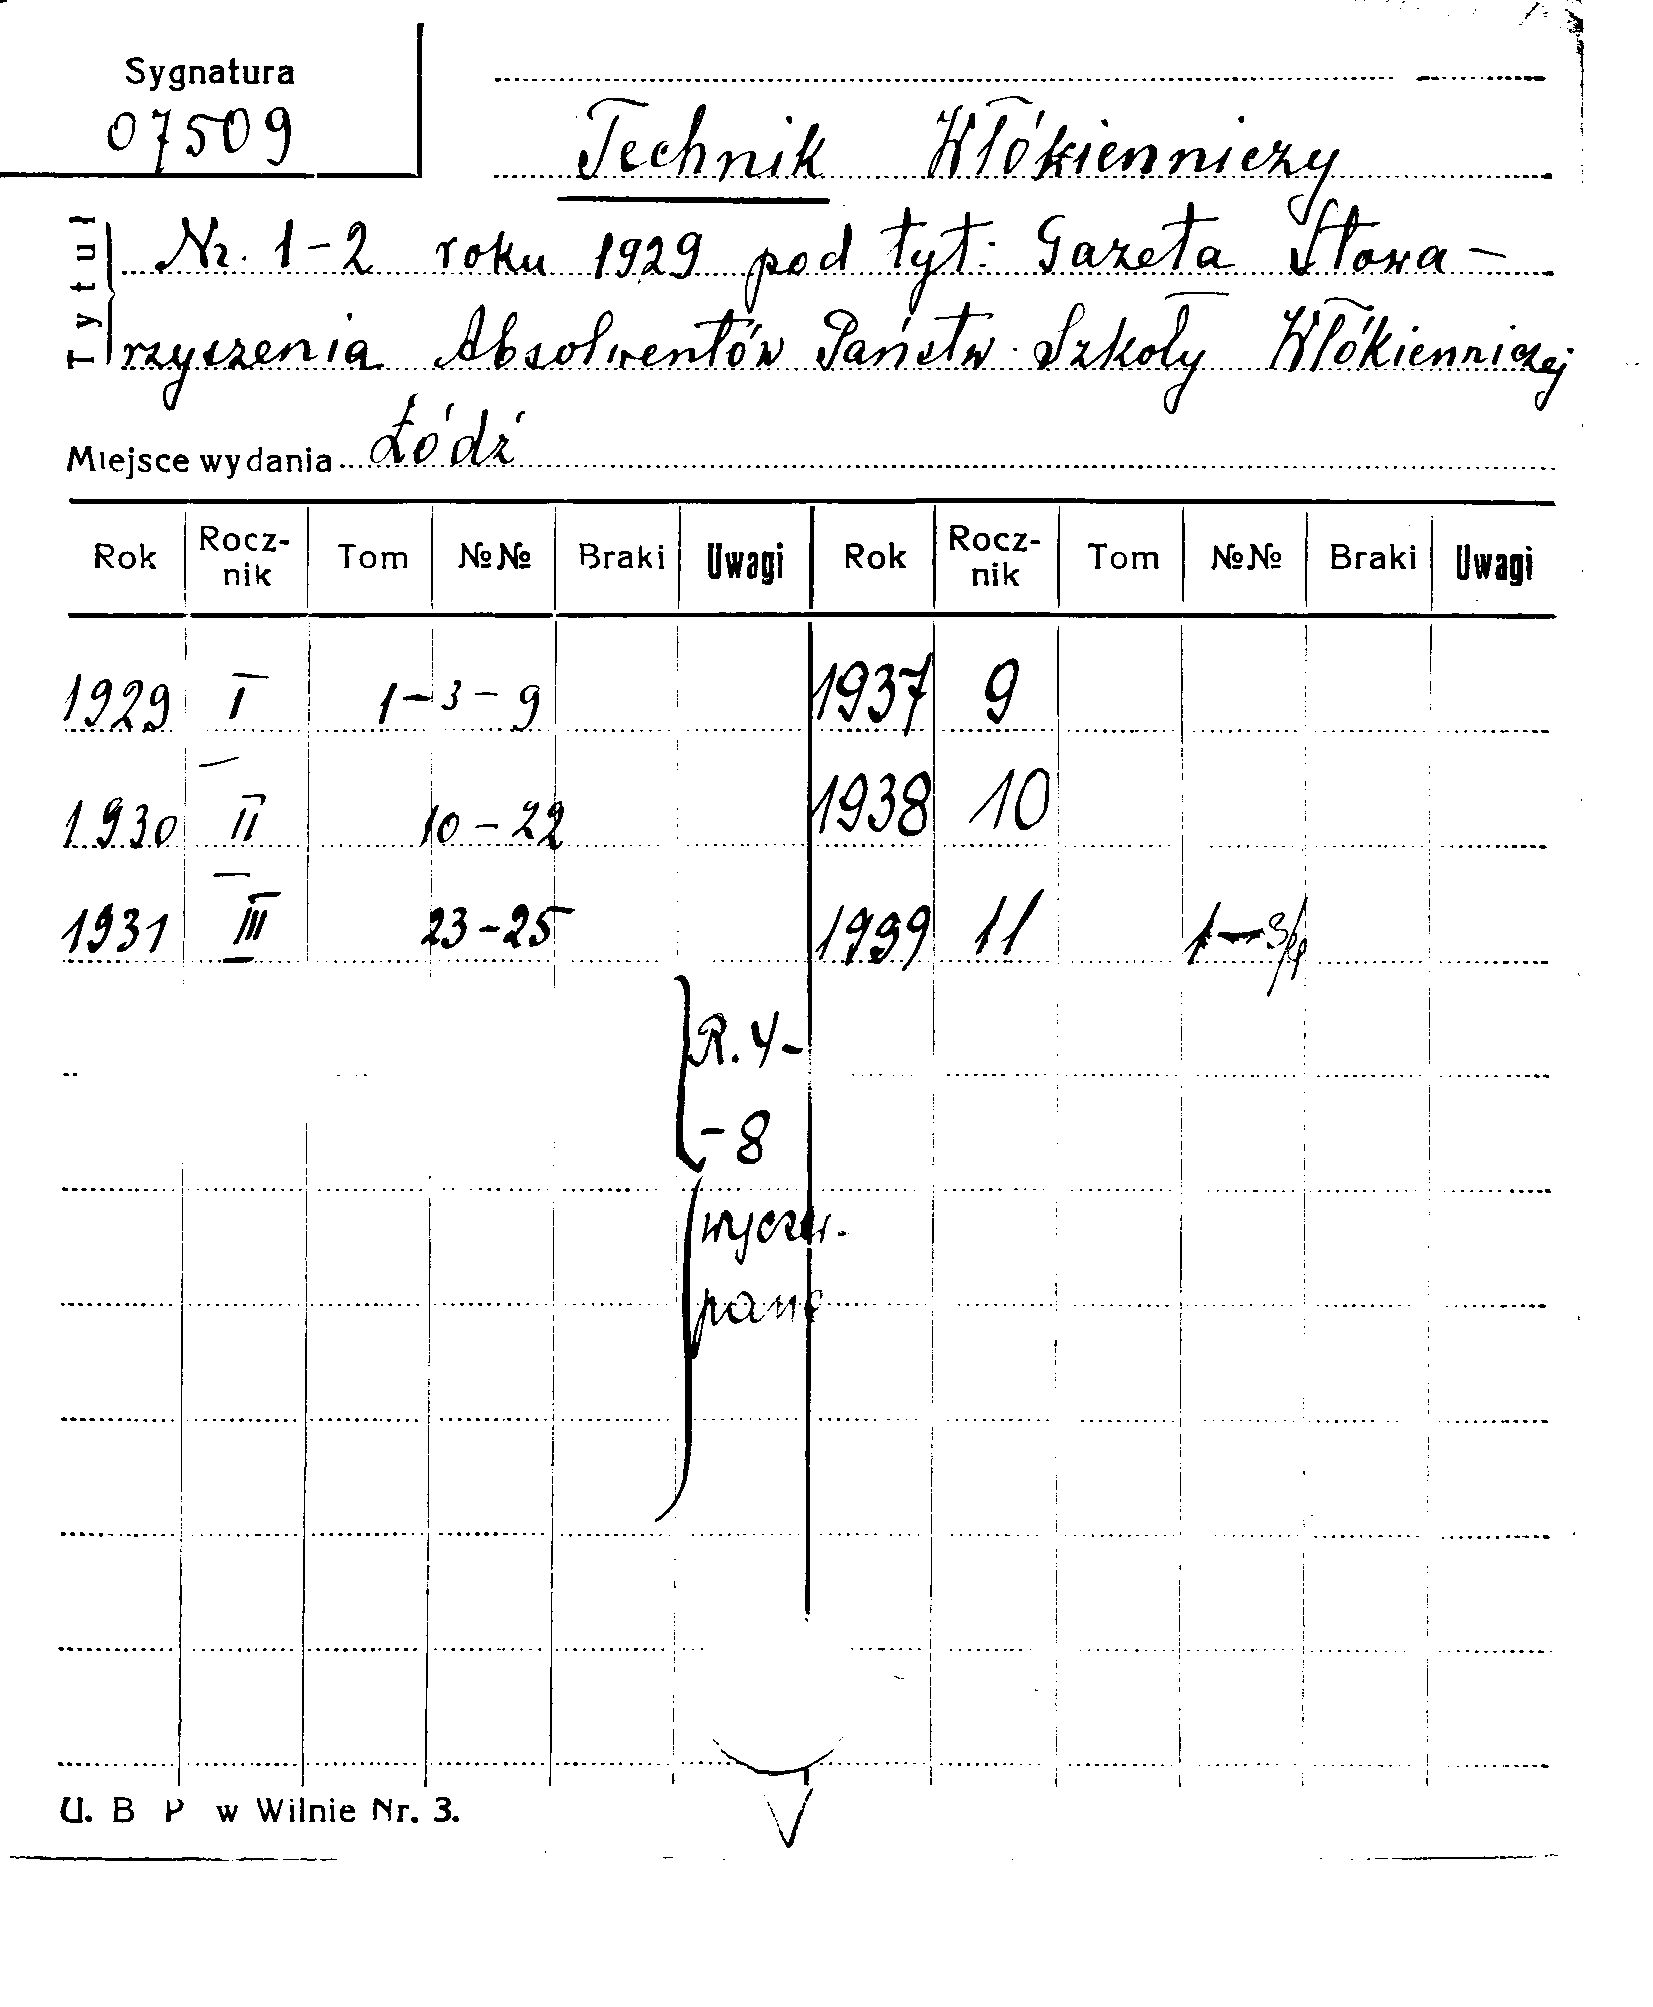 Sygnatura
07509
Technik Włókienniczy
Tytuł
Nr. 1-2 roku 1929 pod tyt: Gazeta Stowa-
rzyszenia Absolwentów Państw. Szkoły Włókienniczej
Miejsce wydania Łódź
Rok Rocz-nik Tom №№ Braki Uwagi Rok Rocz-nik Tom №№ Braki Uwagi
1929 I 1-3-9 1937 9
1930 II 10-22 1938 10
1931 III 23-25 1939 11 1-3/4
R. 4-
-8
wyczer-
pane
U. B P w Wilnie Nr. 3.